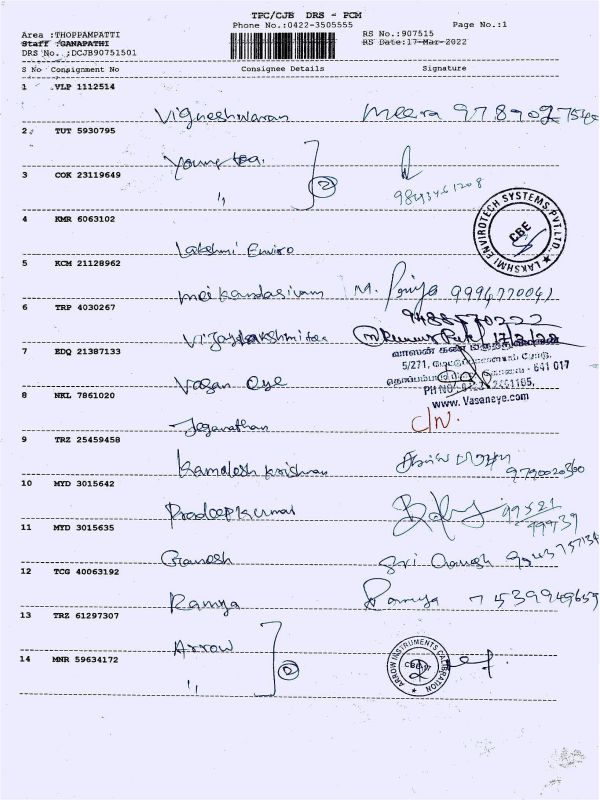 TPC/CJB DRS - PCM
Phone No.:0422-3505555
Page No.:1
Area :THOPPAMPATTI
RS No.:907515
Staff :GANAPATHI
RS Date:17-Mar-2022
DRS No. :DCJB90751501
S No Consignment No Consignee Details Signature
1 VLP 1112514
Vigneshwaran Meera
2 TUT 5930795
Young tea.
3 COK 23119649
" 2
LAKSHMI ENVIROTECH SYSTEMS PVT.LTD.
CBE
4 KMR 6063102
Lakshmi Enviro
5 KCM 21128962
Meikandasivam M. Priya 9994770041
6 TRP 4030267
9488570222
Vijayalakshmi tea 17/3/22
7 EDQ 21387133
வாசன் கண்
5/271,
641 017
Vasan eye
www.Vasaneye.com
8 NKL 7861020
C/N.
Jeganathan
9 TRZ 25459458
Kamalesh Krishnan
10 MYD 3015642
Pradeepkumar
11 MYD 3015635
Ganesh Sri Ganesh
12 TCG 40063192
Ramya Ramya 7539949659
13 TRZ 61297307
Arrow
ARROW INSTRUMENTS CALIBRATION
14 MNR 59634172
" 2